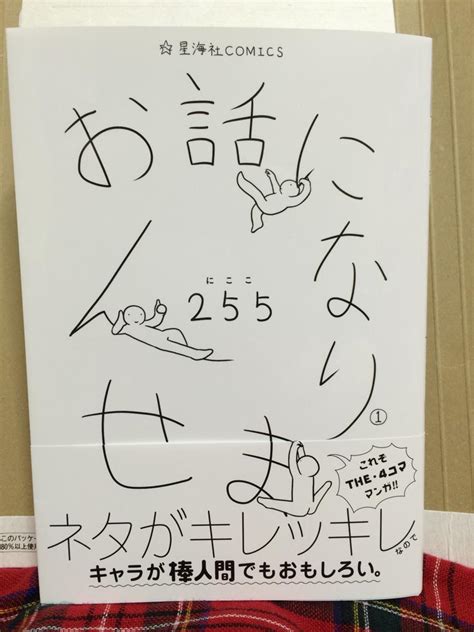 ☆星海社COMICS
お話になりません
にここ
255
①
これぞ
THE・4コマ
マンガ!!
ネタがキレッキレなので
キャラが棒人間でもおもしろい。
このパッケー
80%以上使用